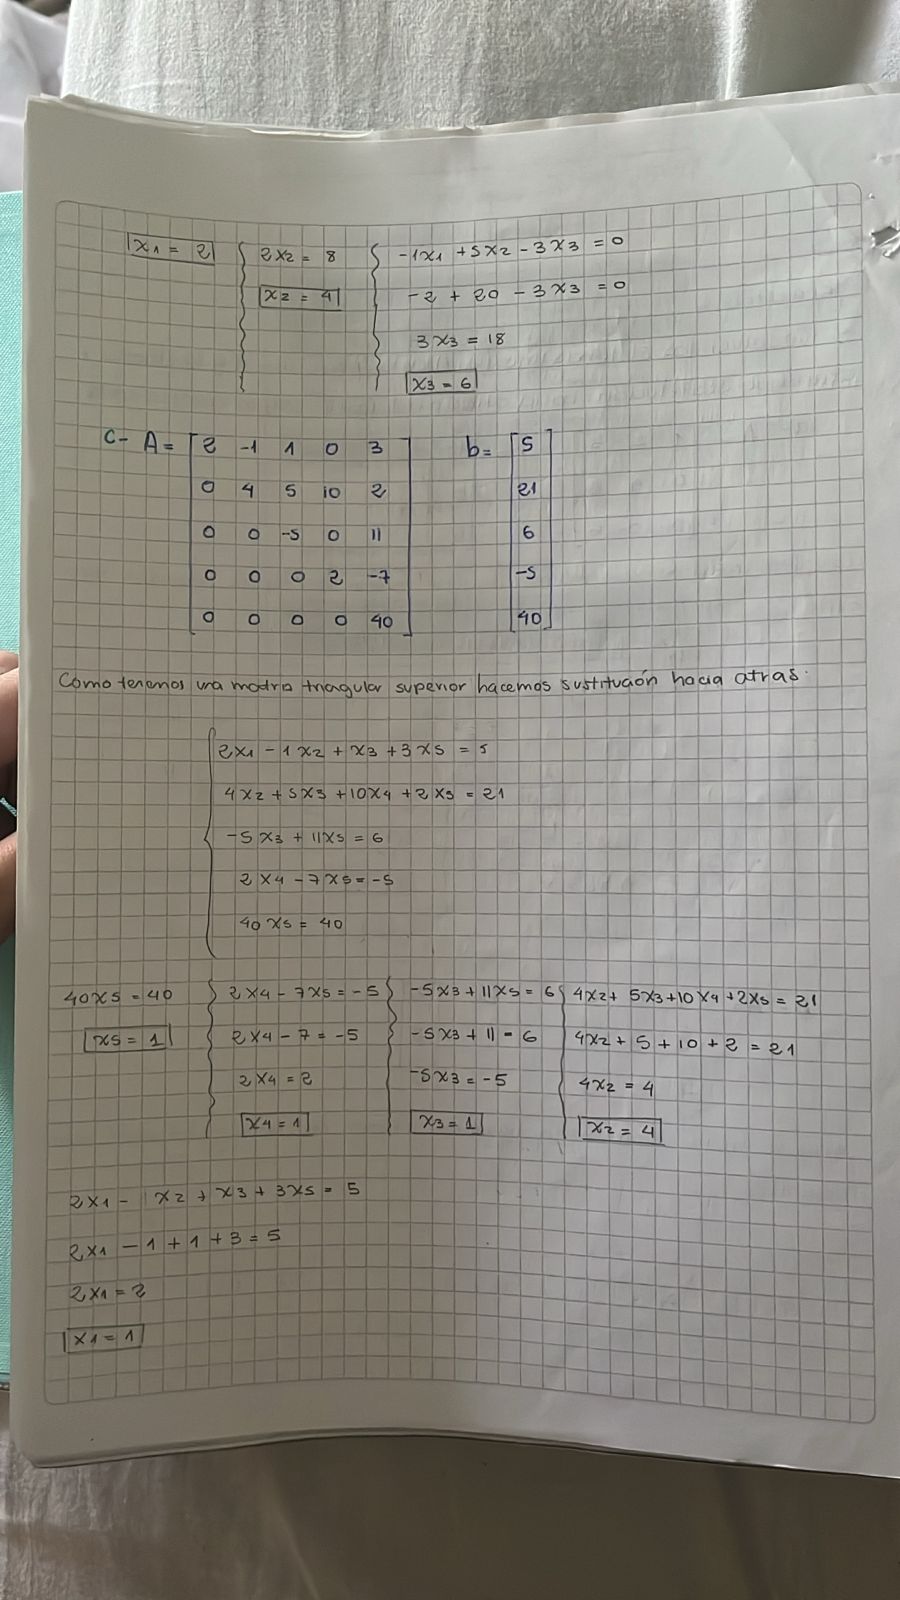 x1 = 2
2x2 = 8
x2 = 4
-1x1 + 5x2 - 3x3 = 0
-2 + 20 - 3x3 = 0
3x3 = 18
x3 = 6
C- A = [ 2 -1 1 0 3 ] b = [ 5 ]
0 4 5 10 2 21
0 0 -5 0 11 6
0 0 0 2 -7 -5
0 0 0 0 40 40
Como tenemos una matriz triangular superior hacemos sustitución hacia atras:
2x1 - 1x2 + x3 + 3x5 = 5
4x2 + 5x3 + 10x4 + 2x5 = 21
-5x3 + 11x5 = 6
2x4 - 7x5 = -5
40x5 = 40
40x5 = 40
x5 = 1
2x4 - 7x5 = -5
2x4 - 7 = -5
2x4 = 2
x4 = 1
-5x3 + 11x5 = 6
-5x3 + 11 = 6
-5x3 = -5
x3 = 1
4x2 + 5x3 + 10x4 + 2x5 = 21
4x2 + 5 + 10 + 2 = 21
4x2 = 4
x2 = 4
2x1 - 1x2 + x3 + 3x5 = 5
2x1 - 1 + 1 + 3 = 5
2x1 = 2
x1 = 1